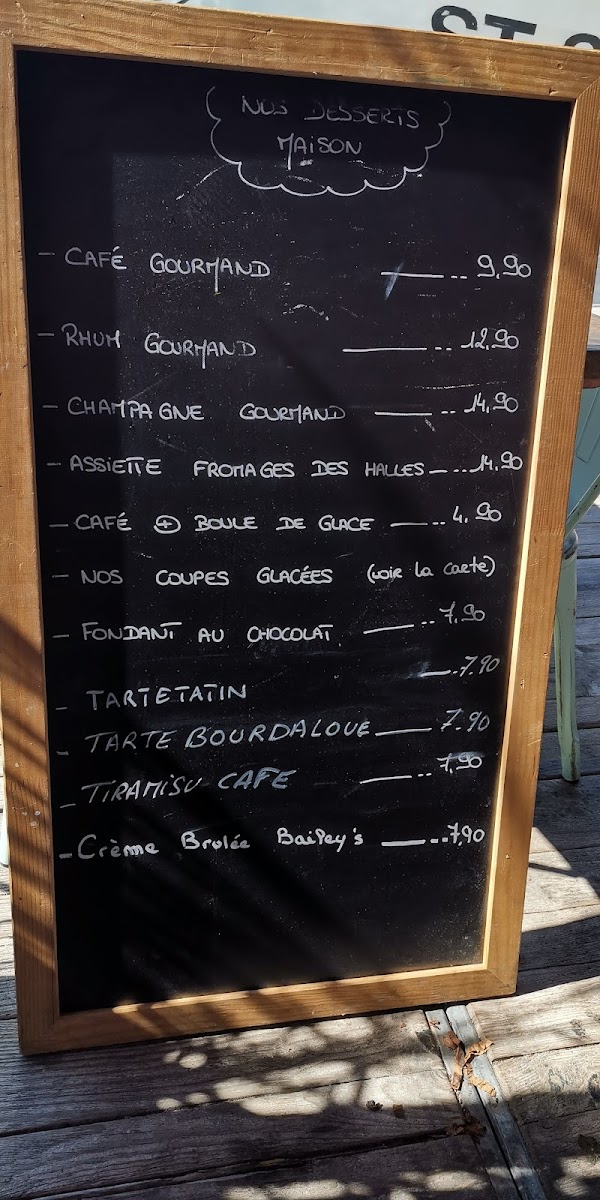 NOS DESSERTS
MAISON
- CAFÉ GOURMAND —-- 9,90
- RHUM GOURMAND —-- 12,90
- CHAMPAGNE GOURMAND —-- 14,90
- ASSIETTE FROMAGES DES HALLES —-- 14,90
- CAFÉ ⊕ BOULE DE GLACE —-- 4,90
- NOS COUPES GLACÉES (voir la carte)
- FONDANT AU CHOCOLAT —-- 7,90
- TARTETATIN —-- 7.90
- TARTE BOURDALOUE —-- 7.90
- TIRAMISU CAFE —-- 7,90
- Crème Brulée Bailey's —-- 7,90